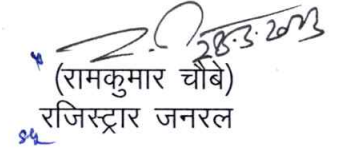 28.3.2023
(रामकुमार चौबे)
रजिस्ट्रार जनरल